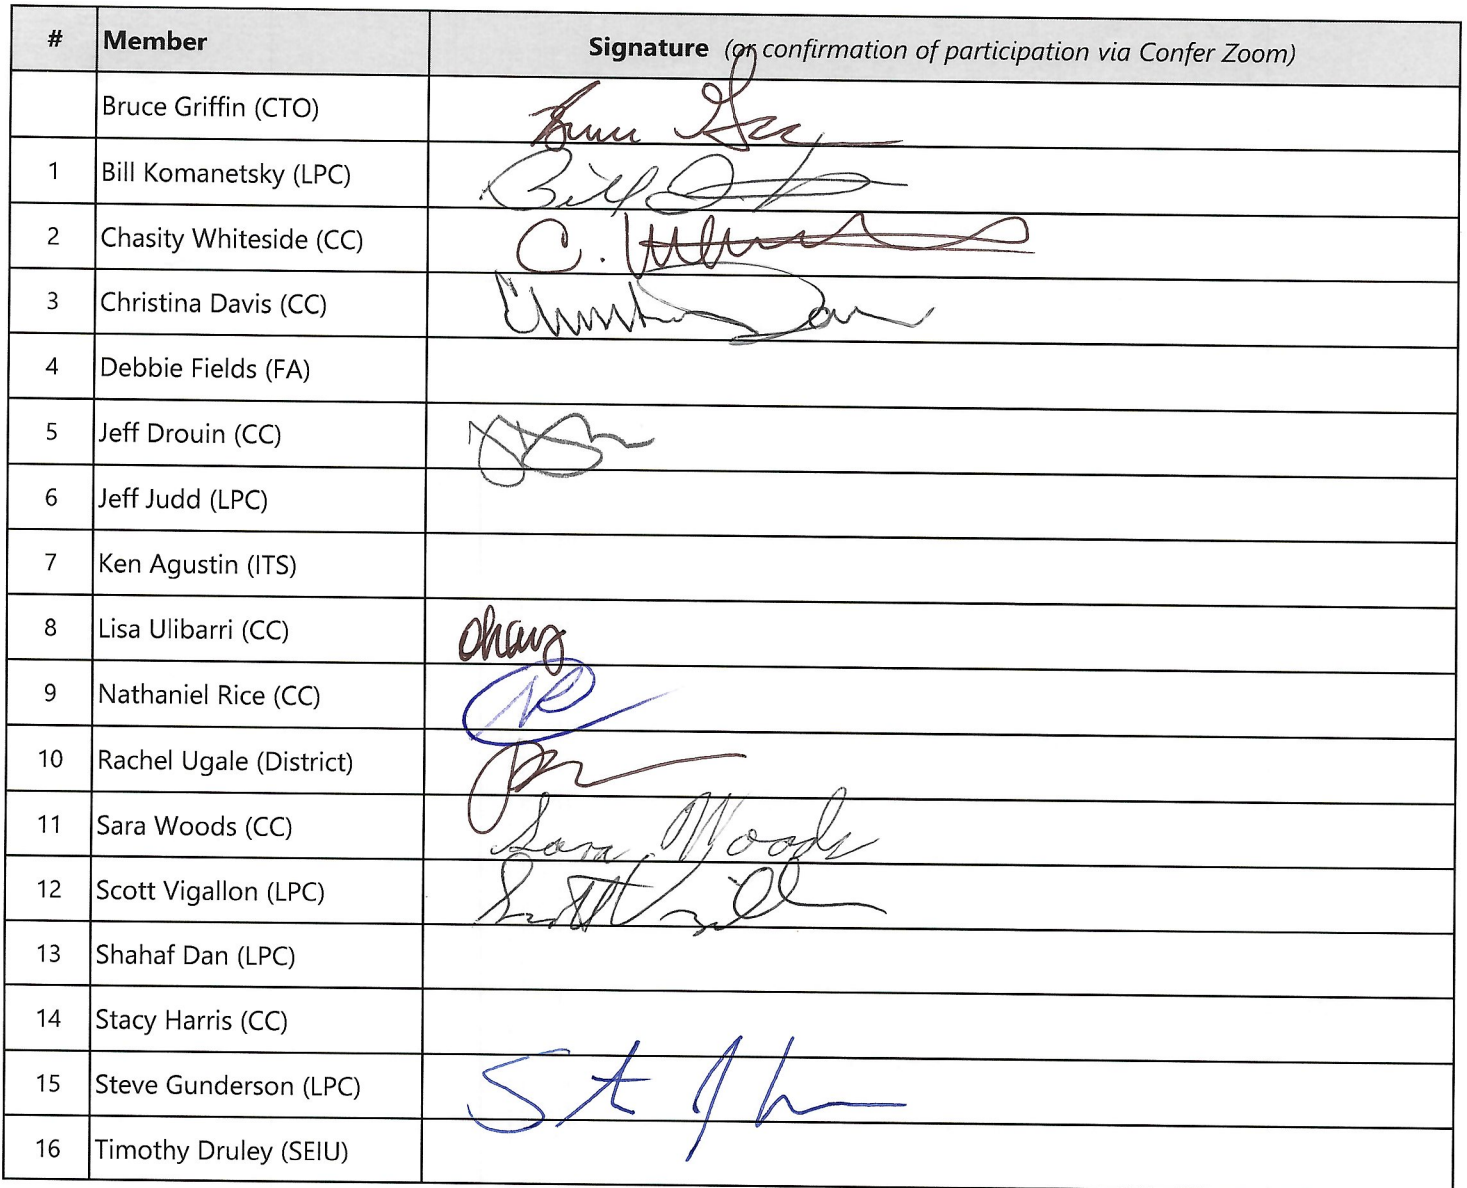 # Member Signature (or confirmation of participation via Confer Zoom)
Bruce Griffin (CTO)
1 Bill Komanetsky (LPC) Bill
2 Chasity Whiteside (CC) C.
3 Christina Davis (CC)
4 Debbie Fields (FA)
5 Jeff Drouin (CC)
6 Jeff Judd (LPC)
7 Ken Agustin (ITS)
8 Lisa Ulibarri (CC)
9 Nathaniel Rice (CC)
10 Rachel Ugale (District)
11 Sara Woods (CC) Sara Woods
12 Scott Vigallon (LPC) Scott
13 Shahaf Dan (LPC)
14 Stacy Harris (CC)
15 Steve Gunderson (LPC)
16 Timothy Druley (SEIU)